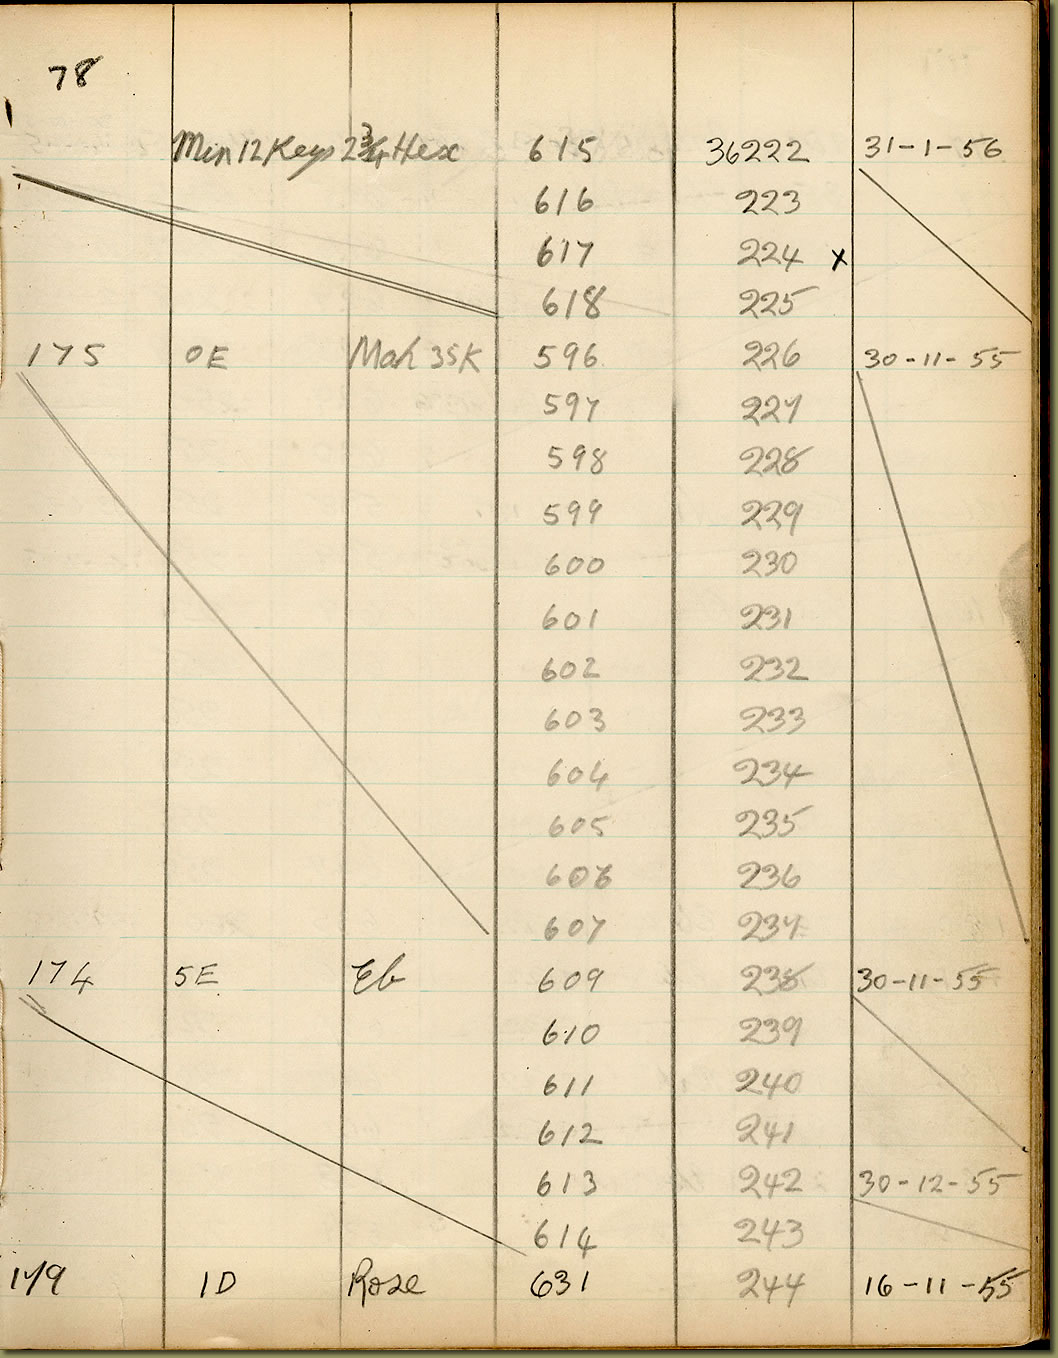 78
Min 12 Keys 2 3/4 Hex 615 36222 31-1-56
616 223
617 224 x
618 225
175 0E Mah 35K 596 226 30-11-55
597 227
598 228
599 229
600 230
601 231
602 232
603 233
604 234
605 235
606 236
607 237
174 5E Eb 609 238 30-11-55
610 239
611 240
612 241
613 242 30-12-55
614 243
179 1D Rose 631 244 16-11-55